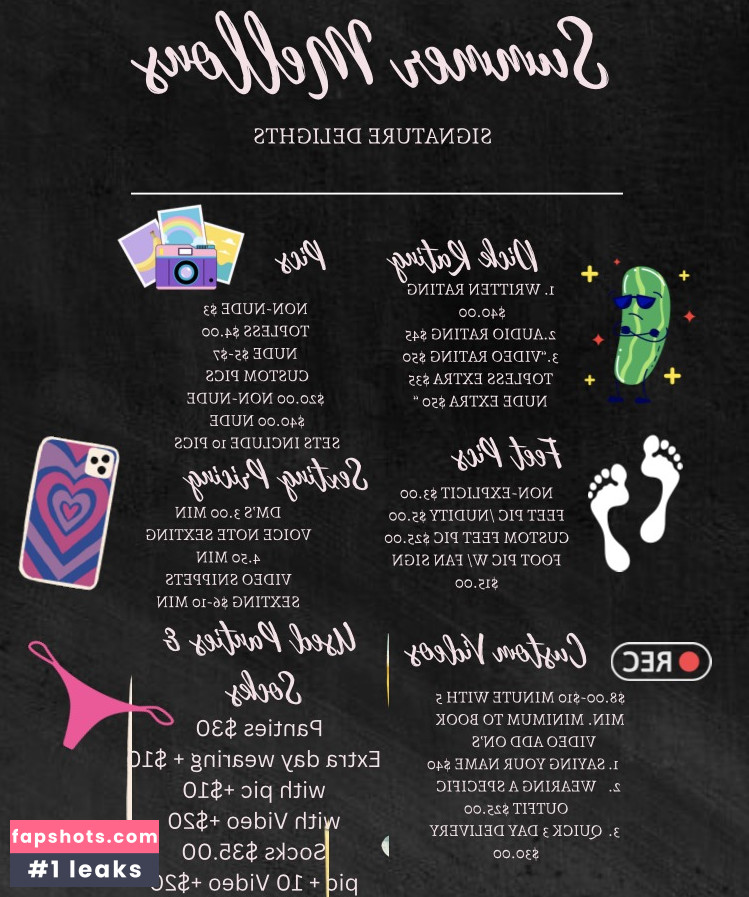 Summer Mellows
SIGNATURE DELIGHTS
Dick Rating
1. WRITTEN RATING
$40.00
2.AUDIO RATING $45
3."VIDEO RATING $50
TOPLESS EXTRA $35
NUDE EXTRA $50 "
Pics
NON-NUDE $3
TOPLESS $4.00
NUDE $5-$7
CUSTOM PICS
$20.00 NON-NUDE
$40.00 NUDE
SETS INCLUDE 10 PICS
Feet Pics
NON-EXPLICIT $3.00
FEET PIC /NUDITY $5.00
CUSTOM FEET PIC $25.00
FOOT PIC W/ FAN SIGN
$15.00
Sexting Pricing
DM'S 3.00 MIN
VOICE NOTE SEXTING
4.50 MIN
VIDEO SNIPPETS
SEXTING $6-10 MIN
Custom Videos
REC
$8.00-$10 MINUTE WITH 5
MIN. MINIMUM TO BOOK
VIDEO ADD ON'S
1. SAYING YOUR NAME $40
2. WEARING A SPECIFIC
OUTFIT $25.00
3. QUICK 3 DAY DELIVERY
$30.00
Used Panties &
Socks
Panties $30
Extra day wearing + $10
with pic +$10
with Video +$20
Socks $35.00
pic + 10 Video +$20
fapshots.com
#1 leaks